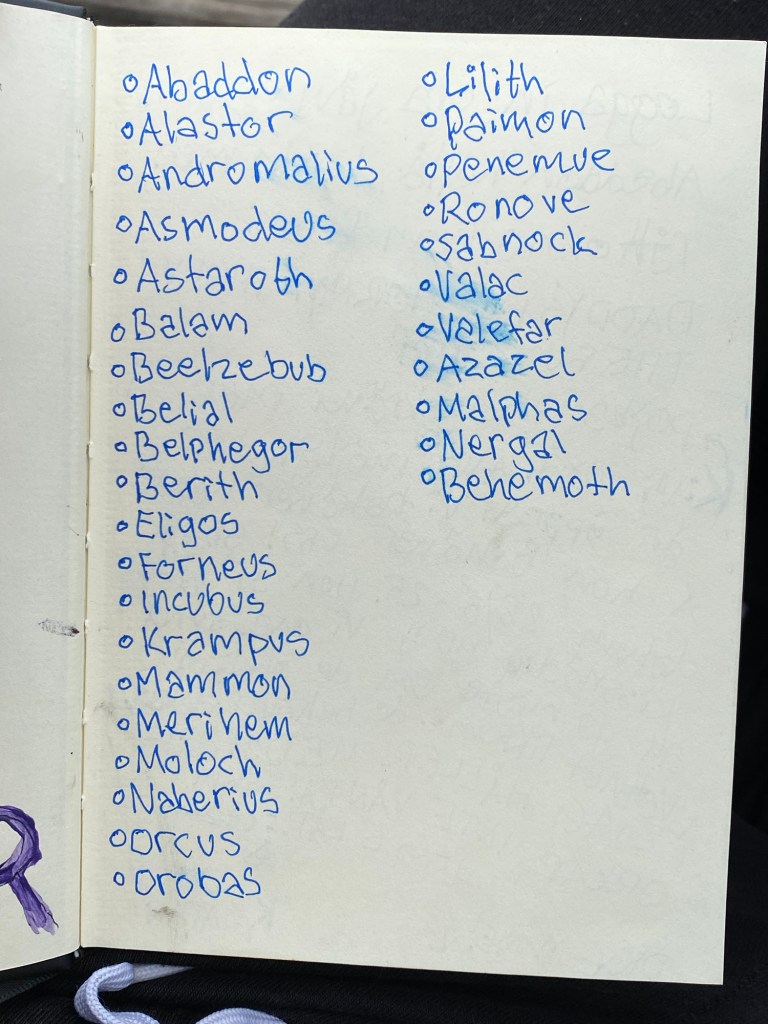 Abaddon
Alastor
Andromalius
Asmodeus
Astaroth
Balam
Beelzebub
Belial
Belphegor
Berith
Eligos
Forneus
Incubus
Krampus
Mammon
Merihem
Moloch
Naberius
Orcus
Orobas
Lilith
Paimon
Penemue
Ronove
Sabnock
Valac
Valefar
Azazel
Malphas
Nergal
Behemoth